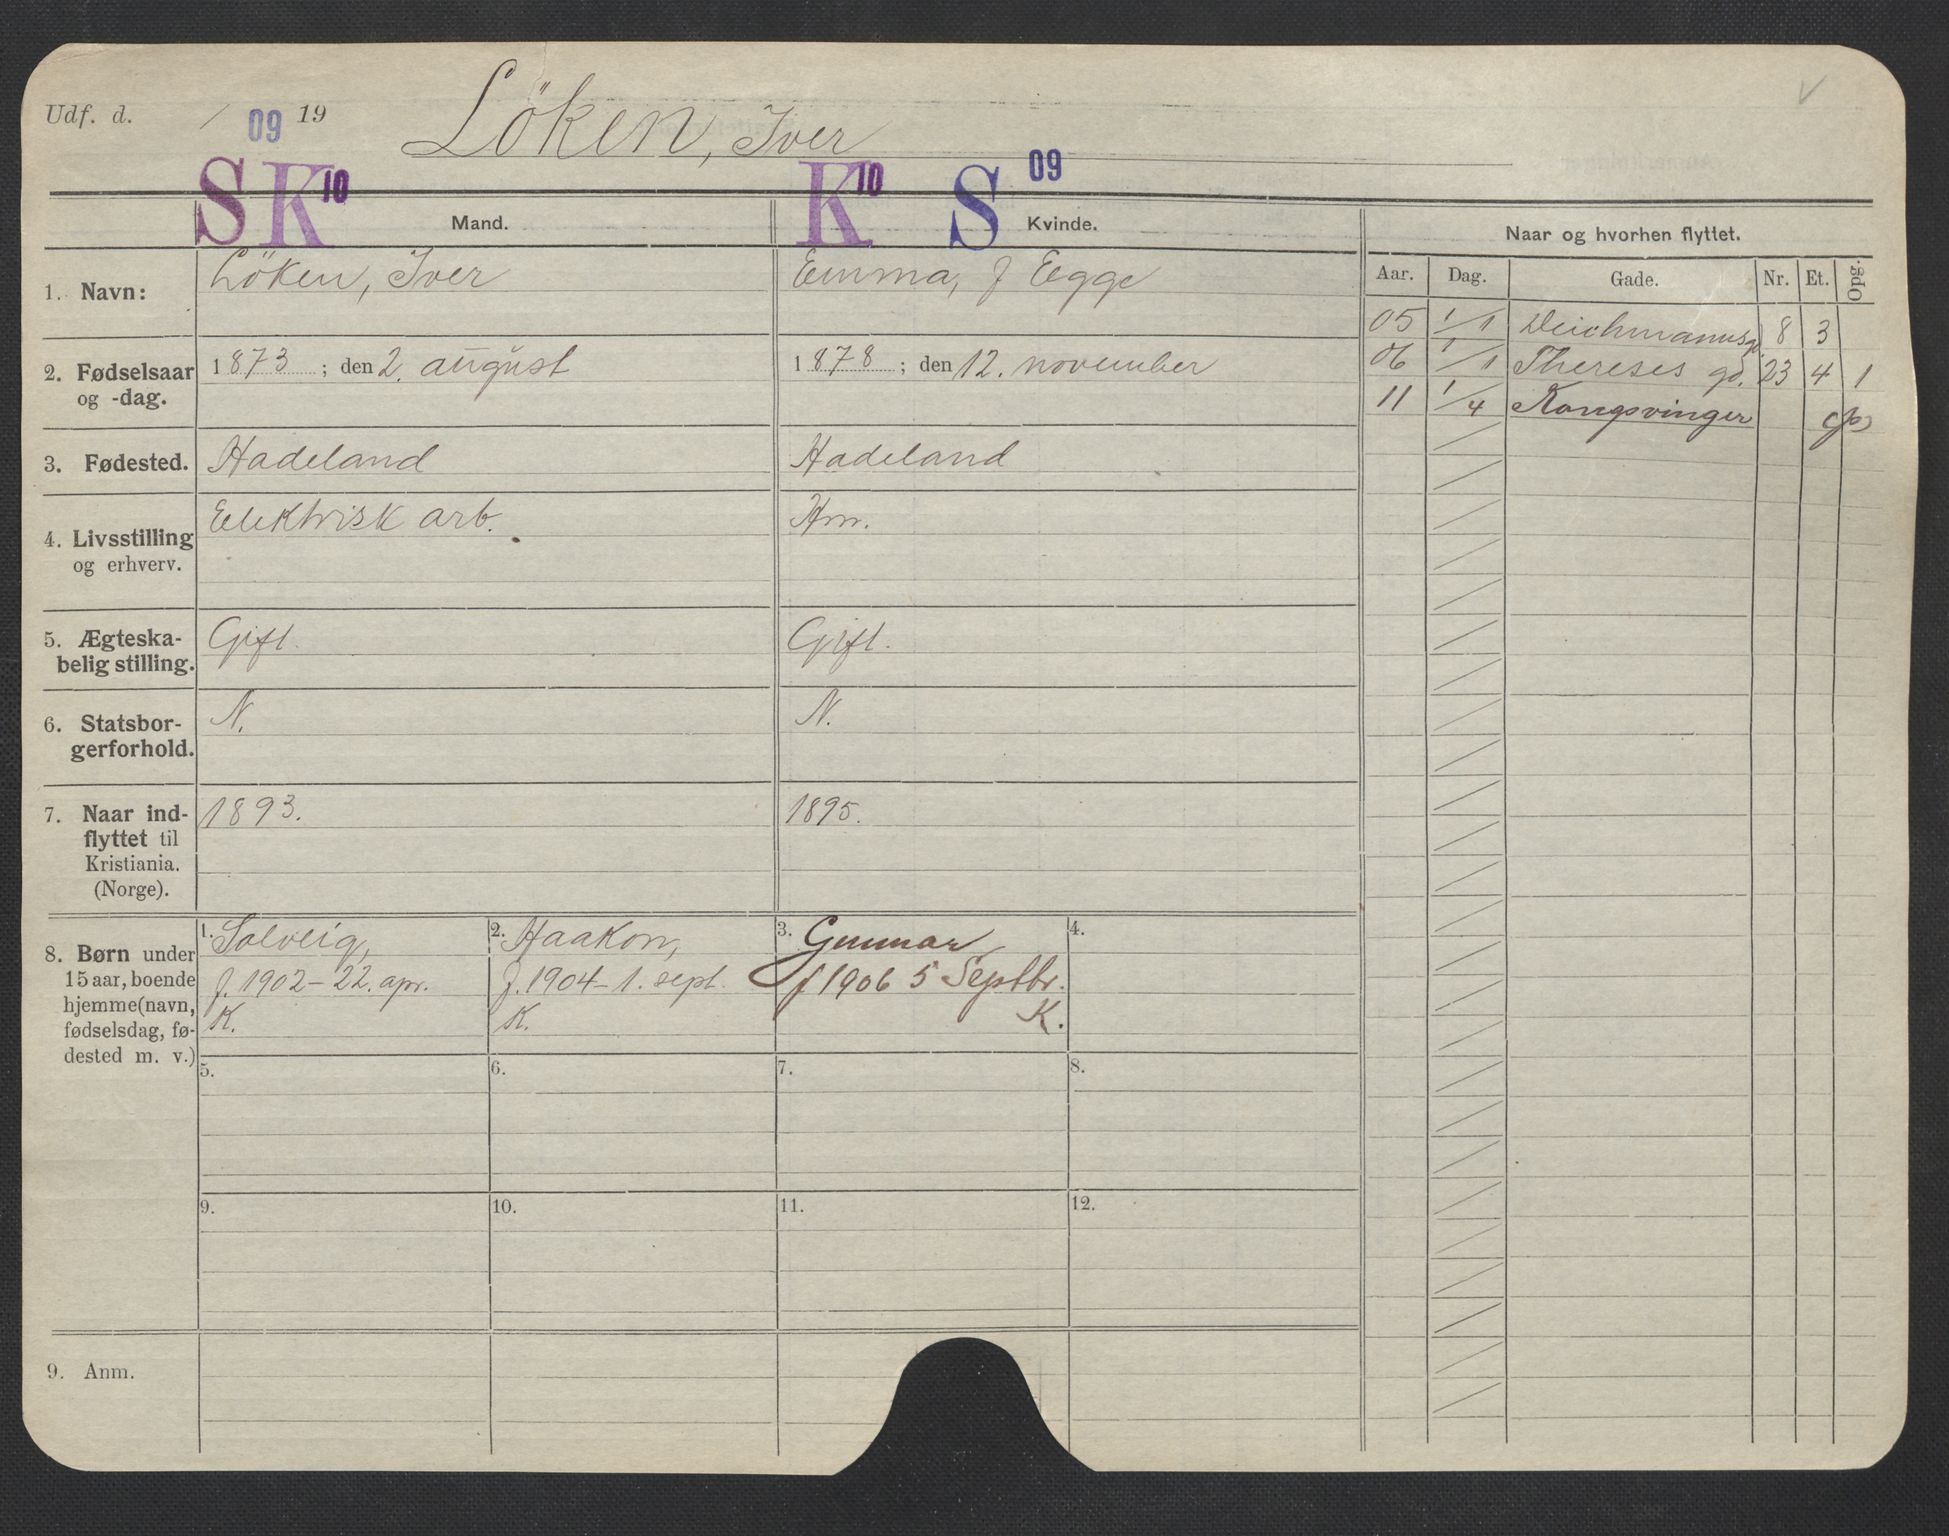 Udf. d. / 19
09
Löken, Iver
S K 10
K 10 S 09
Mand.
Kvinde.
Naar og hvorhen flyttet.
Aar. Dag. Gade. Nr. Et. Opg.
05 1/1 Deichmannsg. 8 3
06 1/1 Thereses gd. 23 4 1
11 1/4 Kongsvinger
1. Navn: Löken, Iver Emma, f Egge
2. Fødselsaar og -dag.
1873; den 2. august 1878; den 12. november
3. Fødested. Hadeland Hadeland
4. Livsstilling og erhverv.
Elektrisk arb. Hm.
5. Ægteska-
belig stilling.
Gift. Gift.
6. Statsbor-
gerforhold.
N. N.
7. Naar ind-
flyttet til
Kristiania.
(Norge).
1893. 1895.
8. Børn under
15 aar, boende
hjemme (navn,
fødselsdag, fø-
dested m. v.)
1. Solveig,
f. 1902 - 22. apr.
K.
2. Haakon,
f. 1904 - 1. sept.
K.
3. Gunnar
f 1906 5 Septbr.
K.
4.
5. 6. 7. 8.
9. 10. 11. 12.
9. Anm.